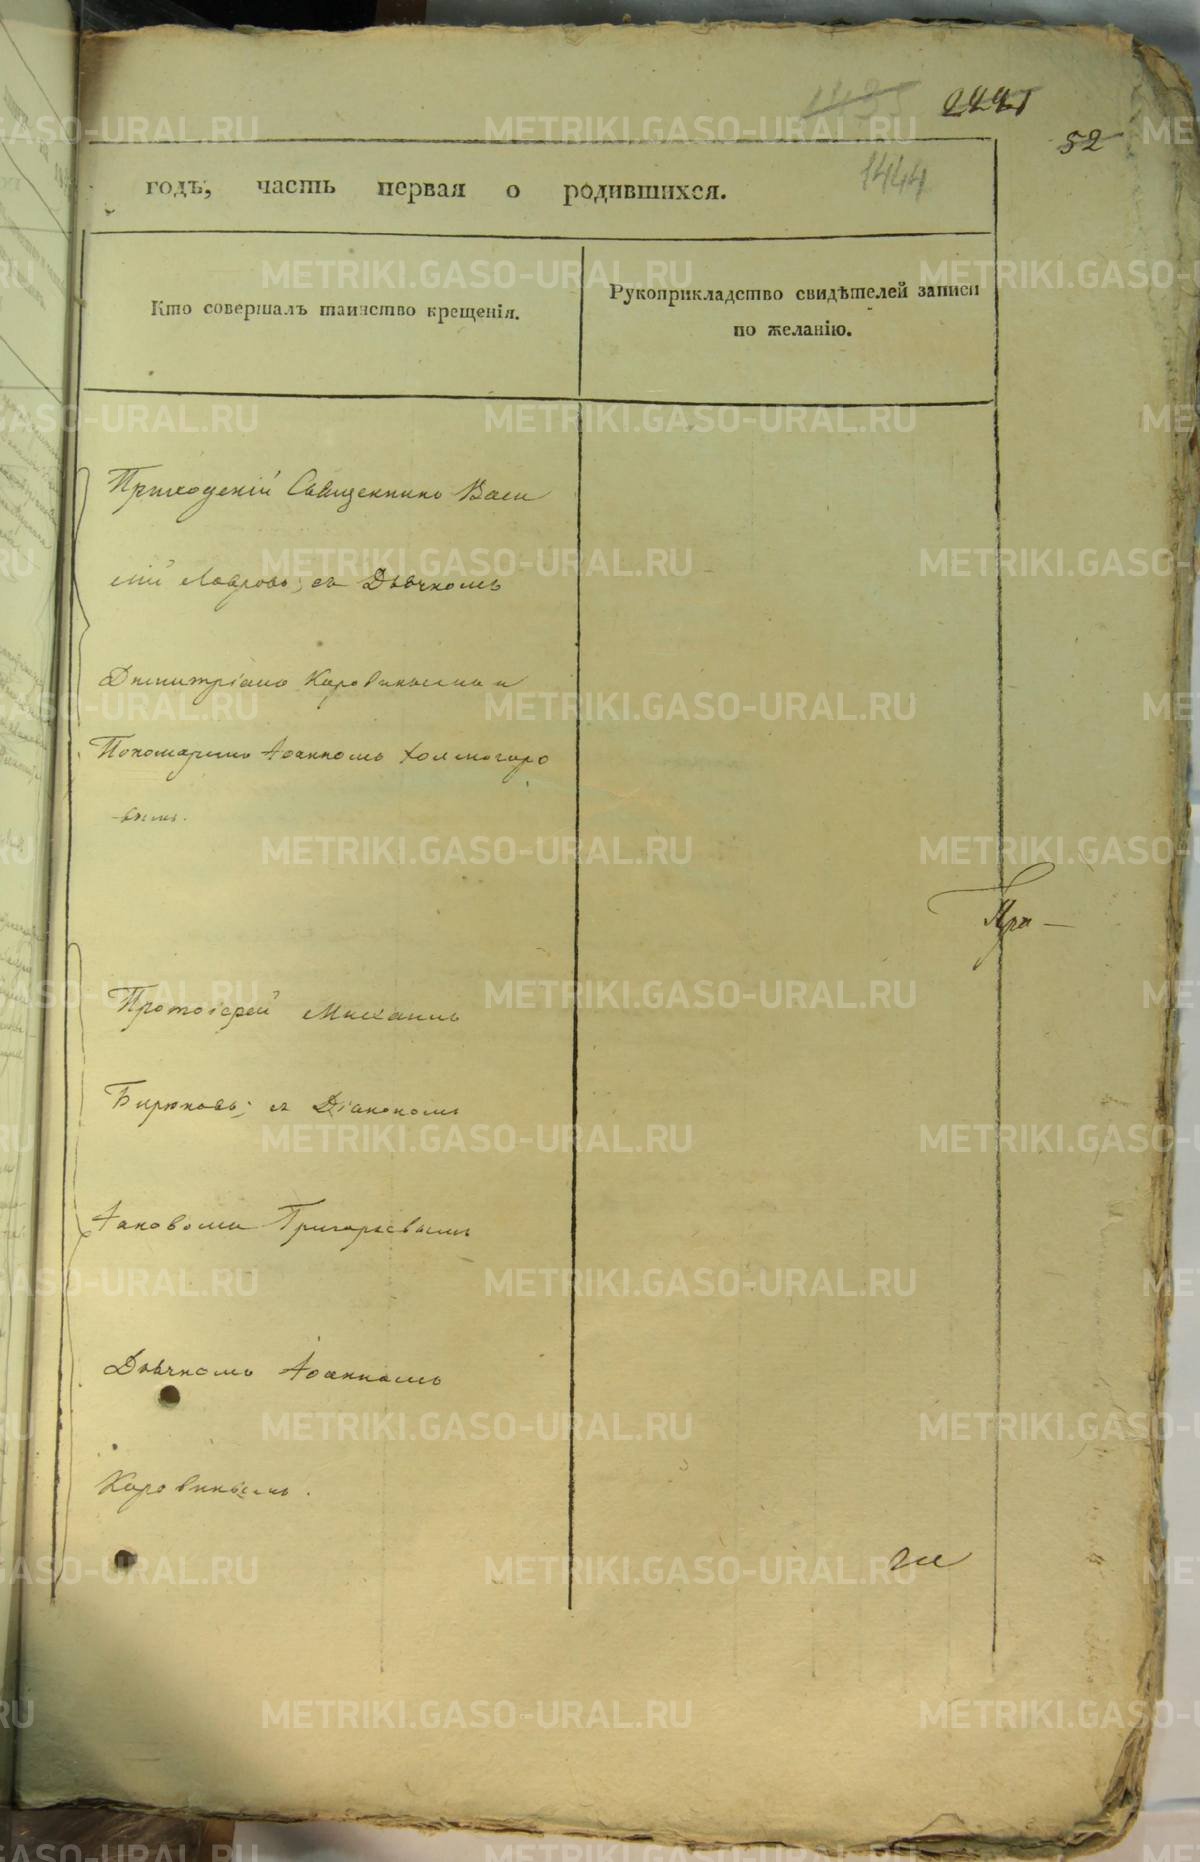 1435
2221
52
1444
годъ, часть первая о родившихся.
Кто совершалъ таинство крещенія.
Рукоприкладство свидѣтелей записи
по желанію.
Приходскій Священникъ Васи
лій Лавровъ, съ Дьячкомъ
Димитріемъ Коровинымъ и
Пономаремъ Іоанномъ Холмогоро
вымъ.
Протоіерей Михаилъ
Бирюковъ; съ Діакономъ
Іаковомъ Григорьевымъ
Дьячкомъ Іоанномъ
Коровинымъ.